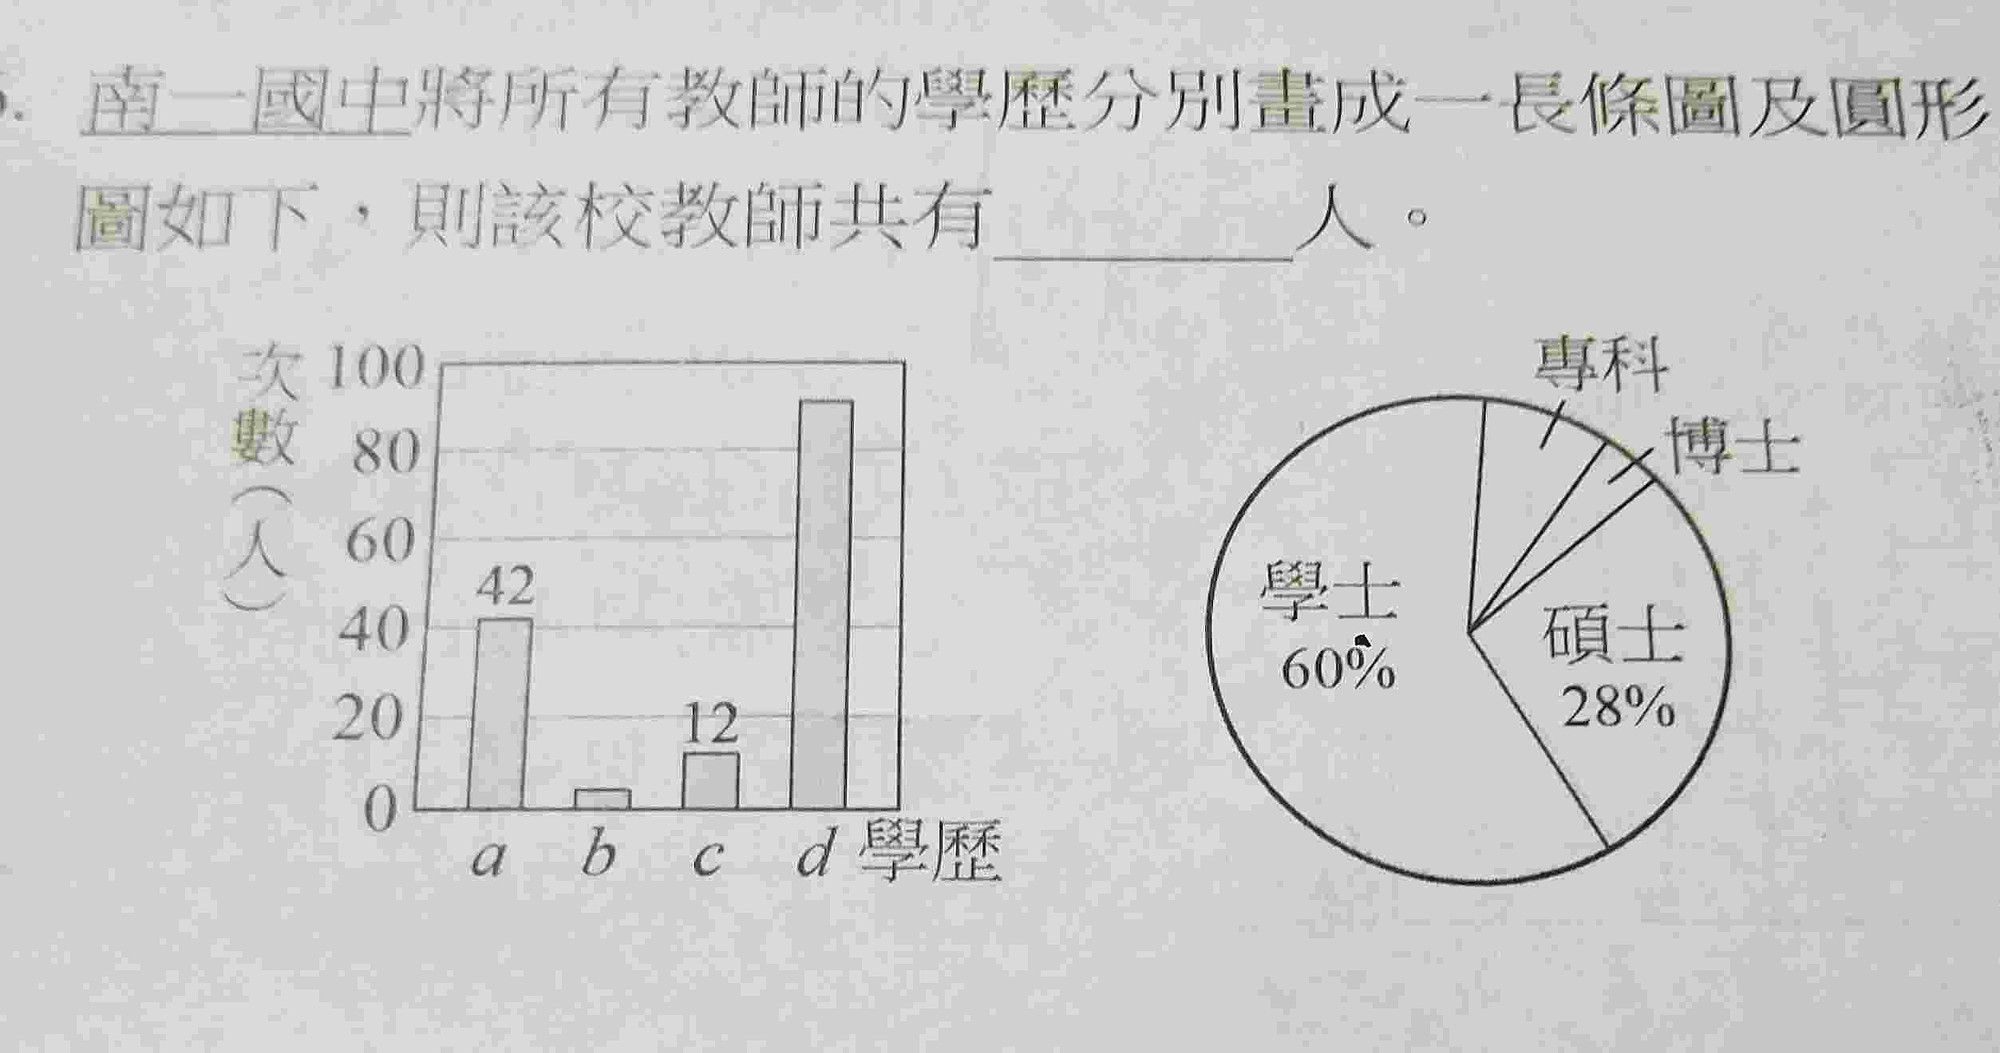 南一國中將所有教師的學歷分別畫成一長條圖及圓形
圖如下，則該校教師共有______人。
次數(人)
100
80
60
40
20
0
42
12
a b c d 學歷
專科
博士
學士
60%
碩士
28%